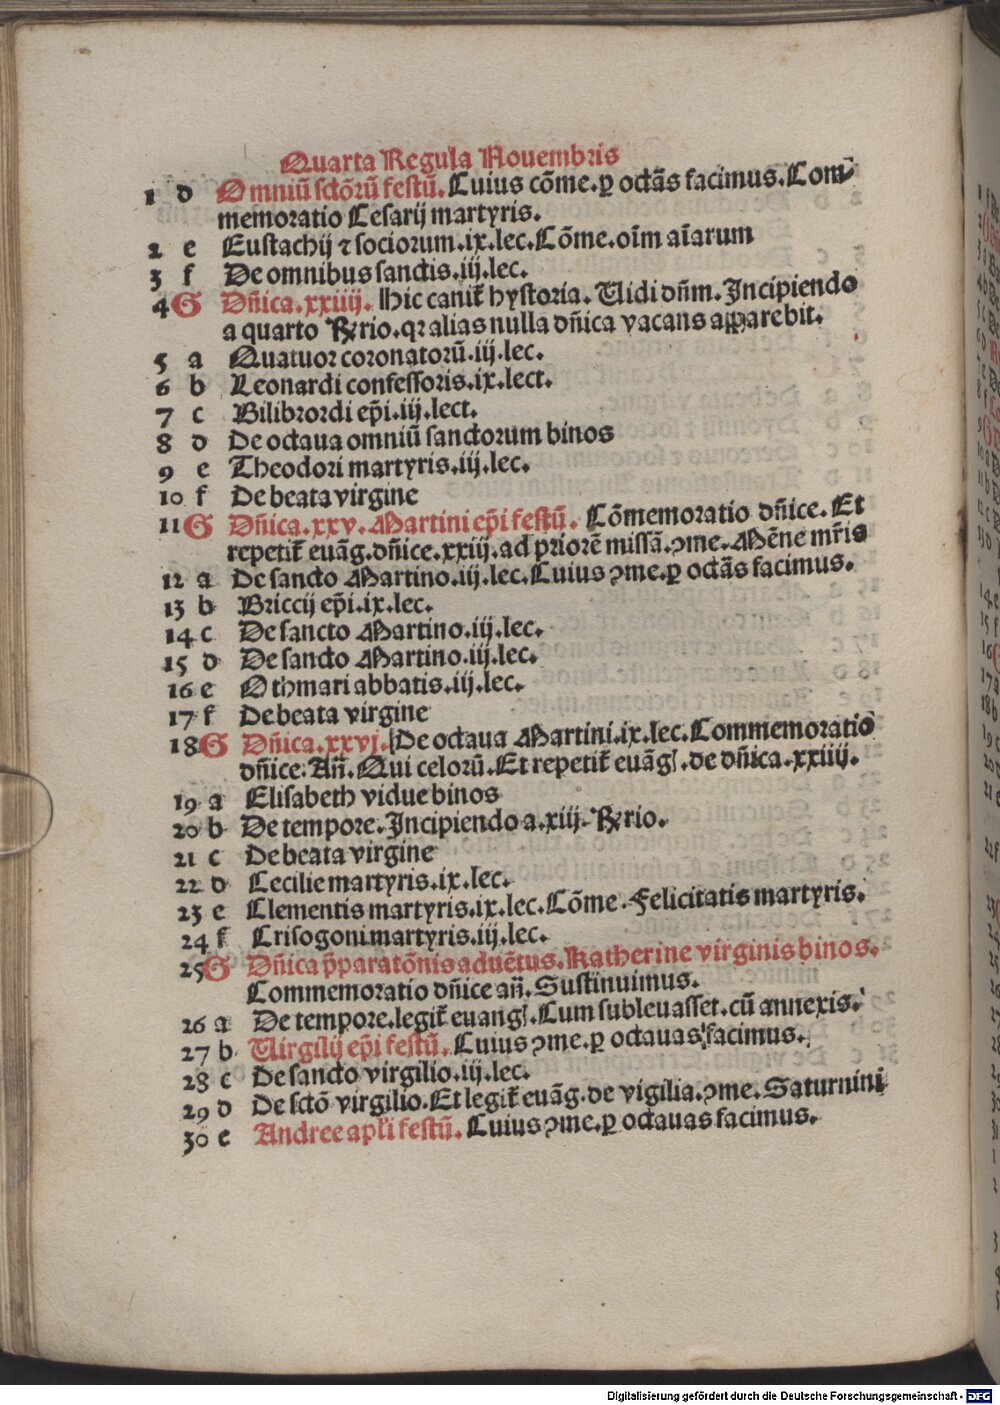 Quarta Regula Nouembris
1 d Omniū sctōrū festū. Cuius cōme. ꝑ octās facimus. Com⸗
memoratio Cesarij martyris.
2 e Eustachij ⁊ sociorum. ix. lec. Cōme. oīm aīarum
3 f De omnibus sanctis. iij. lec.
4 G Dn̄ica. xxiiij. Hic canit᷑ hystoria. Uidi dn̄m. Incipiendo
a quarto ℟rio. qꝛ alias nulla dn̄ica vacans apparebit.
5 a Quatuor coronatorū. iij. lec.
6 b Leonardi confessoris. ix. lect.
7 c Bilibrordi ep̄i. iij. lect.
8 d De octaua omniū sanctorum binos
9 e Theodori martyris. iij. lec.
10 f De beata virgine
11 G Dn̄ica. xxv. Martini ep̄i festū. Cōmemoratio dn̄ice. Et
repetit᷑ euāg. dn̄ice. xxiij. ad priorē missā. ꝯme. Mēne mr̄is
12 a De sancto Martino. iij. lec. Cuius ꝯme. ꝑ octās facimus.
13 b Briccij ep̄i. ix. lec.
14 c De sancto Martino. iij. lec.
15 d De sancto Martino. iij. lec.
16 e Othmari abbatis. iij. lec.
17 f De beata virgine
18 G Dn̄ica. xxvj. De octaua Martini. ix. lec. Commemoratio
dn̄ice. Añ. Qui celorū. Et repetit᷑ euāgl. de dn̄ica. xxiiij.
19 a Elisabeth vidue binos
20 b De tempore. Incipiendo a. xiij. ℟rio.
21 c De beata virgine
22 d Cecilie martyris. ix. lec.
23 e Clementis martyris. ix. lec. Cōme. Felicitatis martyris.
24 f Crisogoni martyris. iij. lec.
25 G Dn̄ica p̄paratōnis aduētus. Katherine virginis binos.
Commemoratio dn̄ice añ. Sustinuimus.
26 a De tempore. legit᷑ euangl. Cum subleuasset. cū annexis.
27 b Uirgilij ep̄i festū. Cuius ꝯme. ꝑ octauas facimus.
28 c De sancto virgilio. iij. lec.
29 d De sctō virgilio. Et legit᷑ euāg. de vigilia. ꝯme. Saturnini
30 e Andree apl̄i festū. Cuius ꝯme. ꝑ octauas facimus.
Digitalisierung gefördert durch die Deutsche Forschungsgemeinschaft - DFG